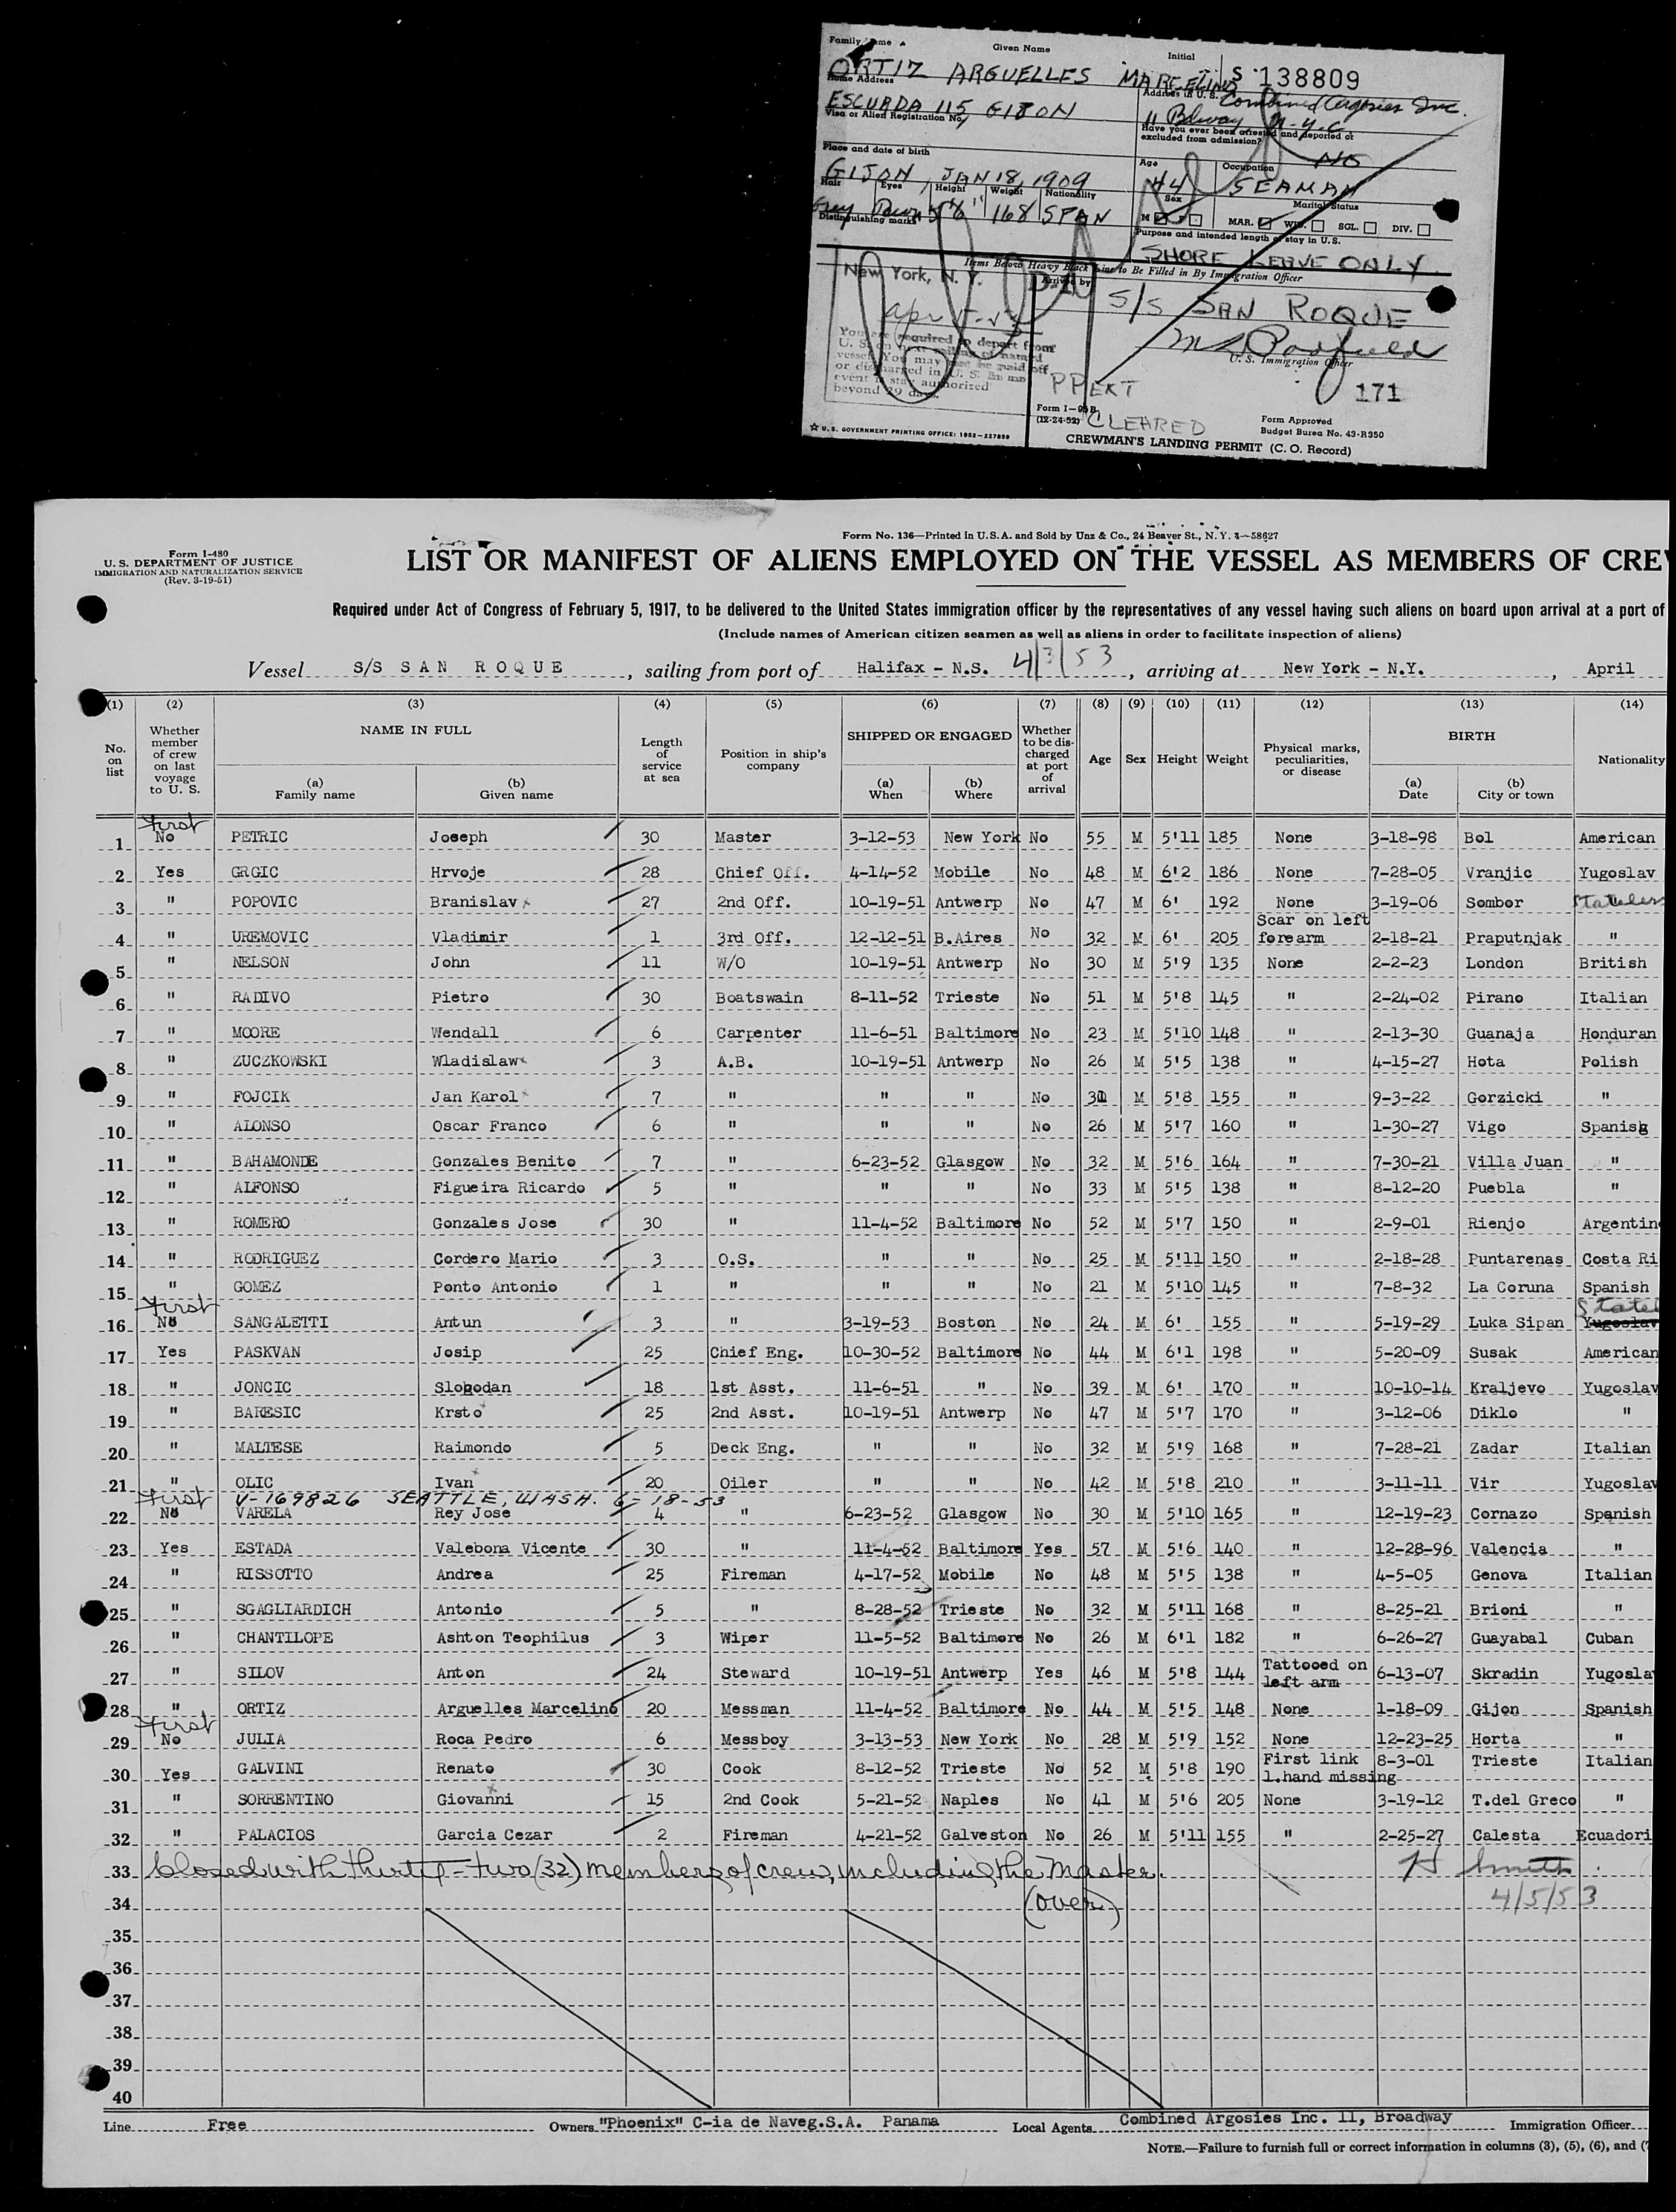 Family Name Given Name Initial
ORTIZ ARGUELLES MARCELINO S 138809
Home Address Address in U. S. Combined Argosies Inc.
ESCURDA 115, GIJON 11 Bdway N.Y.C.
Visa or Alien Registration No. Have you ever been arrested and deported or excluded from admission? NO
Place and date of birth Age Occupation
GIJON, JAN 18, 1909 44 SEAMAN
Hair Eyes Height Weight Nationality Sex Marital Status
5'6" 168 SPAN M F MAR. WID. SGL. DIV.
Distinguishing marks Purpose and intended length of stay in U.S.
SHORE LEAVE ONLY.
Items Below Heavy Black Line to Be Filled in By Immigration Officer
New York, N. Y. D-1 Arrived by S/S SAN ROQUE
You are required to depart from
U. S. on next sailing of named
vessel. You may not be paid off
or discharged in U. S. In no
event is stay authorized
beyond 29 days.
U. S. Immigration Officer
171
CLEARED
Form I-95B
(12-24-52)
Form Approved
Budget Bureau No. 43-R350
☆ U. S. GOVERNMENT PRINTING OFFICE: 1952-227859
CREWMAN'S LANDING PERMIT (C. O. Record)
Form No. 136—Printed in U.S.A. and Sold by Unz & Co., 24 Beaver St., N. Y. 4—58627
Form I-480
U. S. DEPARTMENT OF JUSTICE
IMMIGRATION AND NATURALIZATION SERVICE
(Rev. 3-19-51)
LIST OR MANIFEST OF ALIENS EMPLOYED ON THE VESSEL AS MEMBERS OF CREW
Required under Act of Congress of February 5, 1917, to be delivered to the United States immigration officer by the representatives of any vessel having such aliens on board upon arrival at a port of
(Include names of American citizen seamen as well as aliens in order to facilitate inspection of aliens)
Vessel S/S SAN ROQUE, sailing from port of Halifax - N.S. 4/3/53, arriving at New York - N.Y., April
(1) (2) (3) (4) (5) (6) (7) (8) (9) (10) (11) (12) (13) (14)
No. on list Whether member of crew on last voyage to U. S. NAME IN FULL (a) Family name (b) Given name Length of service at sea Position in ship's company SHIPPED OR ENGAGED (a) When (b) Where Whether to be discharged at port of arrival Age Sex Height Weight Physical marks, peculiarities, or disease BIRTH (a) Date (b) City or town Nationality
First
1 No PETRIC Joseph 30 Master 3-12-53 New York No 55 M 5'11 185 None 3-18-98 Bol American
2 Yes GRGIC Hrvoje 28 Chief Off. 4-14-52 Mobile No 48 M 6'2 186 None 7-28-05 Vranjic Yugoslav
3 " POPOVIC Branislav 27 2nd Off. 10-19-51 Antwerp No 47 M 6' 192 None 3-19-06 Sombor Stateless
4 " UREMOVIC Vladimir 1 3rd Off. 12-12-51 B.Aires No 32 M 6' 205 Scar on left forearm 2-18-21 Praputnjak "
5 " NELSON John 11 W/O 10-19-51 Antwerp No 30 M 5'9 135 None 2-2-23 London British
6 " RADIVO Pietro 30 Boatswain 8-11-52 Trieste No 51 M 5'8 145 " 2-24-02 Pirano Italian
7 " MOORE Wendall 6 Carpenter 11-6-51 Baltimore No 23 M 5'10 148 " 2-13-30 Guanaja Honduran
8 " ZUCZKOWSKI Wladislaw 3 A.B. 10-19-51 Antwerp No 26 M 5'5 138 " 4-15-27 Hota Polish
9 " FOJCIK Jan Karol 7 " " " No 30 M 5'8 155 " 9-3-22 Gorzicki "
10 " ALONSO Oscar Franco 6 " " " No 26 M 5'7 160 " 1-30-27 Vigo Spanish
11 " BAHAMONDE Gonzales Benito 7 " 6-23-52 Glasgow No 32 M 5'6 164 " 7-30-21 Villa Juan "
12 " ALFONSO Figueira Ricardo 5 " " " No 33 M 5'5 138 " 8-12-20 Puebla "
13 " ROMERO Gonzales Jose 30 " 11-4-52 Baltimore No 52 M 5'7 150 " 2-9-01 Rienjo Argentin
14 " RODRIGUEZ Cordero Mario 3 O.S. " " No 25 M 5'11 150 " 2-18-28 Puntarenas Costa Ri
15 " GOMEZ Ponto Antonio 1 " " " No 21 M 5'10 145 " 7-8-32 La Coruna Spanish
First Statel
16 No SANGALETTI Antun 3 " 3-19-53 Boston No 24 M 6' 155 " 5-19-29 Luka Sipan Yugoslav
17 Yes PASKVAN Josip 25 Chief Eng. 10-30-52 Baltimore No 44 M 6'1 198 " 5-20-09 Susak American
18 " JONCIC Slobodan 18 1st Asst. 11-6-51 " No 39 M 6' 170 " 10-10-14 Kraljevo Yugoslav
19 " BARESIC Krsto 25 2nd Asst. 10-19-51 Antwerp No 47 M 5'7 170 " 3-12-06 Diklo "
20 " MALTESE Raimondo 5 Deck Eng. " " No 32 M 5'9 168 " 7-28-21 Zadar Italian
21 " OLIC Ivan 20 Oiler " " No 42 M 5'8 210 " 3-11-11 Vir Yugoslav
First V-169826 SEATTLE, WASH. 6-18-53
22 No VARELA Rey Jose 4 " 6-23-52 Glasgow No 30 M 5'10 165 " 12-19-23 Cornazo Spanish
23 Yes ESTADA Valebona Vicente 30 " 11-4-52 Baltimore Yes 57 M 5'6 140 " 12-28-96 Valencia "
24 " RISSOTTO Andrea 25 Fireman 4-17-52 Mobile No 48 M 5'5 138 " 4-5-05 Genova Italian
25 " SGAGLIARDICH Antonio 5 " 8-28-52 Trieste No 32 M 5'11 168 " 8-25-21 Brioni "
26 " CHANTILOPE Ashton Teophilus 3 Wiper 11-5-52 Baltimore No 26 M 6'1 182 " 6-26-27 Guayabal Cuban
27 " SILOV Anton 24 Steward 10-19-51 Antwerp Yes 46 M 5'8 144 Tattooed on left arm 6-13-07 Skradin Yugosla
28 " ORTIZ Arguelles Marcelino 20 Messman 11-4-52 Baltimore No 44 M 5'5 148 None 1-18-09 Gijon Spanish
First
29 No JULIA Roca Pedro 6 Messboy 3-13-53 New York No 28 M 5'9 152 None 12-23-25 Horta "
30 Yes GALVINI Renato 30 Cook 8-12-52 Trieste No 52 M 5'8 190 First link l.hand missing 8-3-01 Trieste Italian
31 " SORRENTINO Giovanni 15 2nd Cook 5-21-52 Naples No 41 M 5'6 205 None 3-19-12 T.del Greco "
32 " PALACIOS Garcia Cezar 2 Fireman 4-21-52 Galveston No 26 M 5'11 155 " 2-25-27 Calesta Ecuadori
33 Closed with thirty-two (32) members of crew, including the Master. H Smith
34 (over) 4/5/53
35
36
37
38
39
40
Line Free Owners "Phoenix" C-ia de Naveg.S.A. Panama Local Agents Combined Argosies Inc. 11, Broadway Immigration Officer
NOTE.—Failure to furnish full or correct information in columns (3), (5), (6), and (7